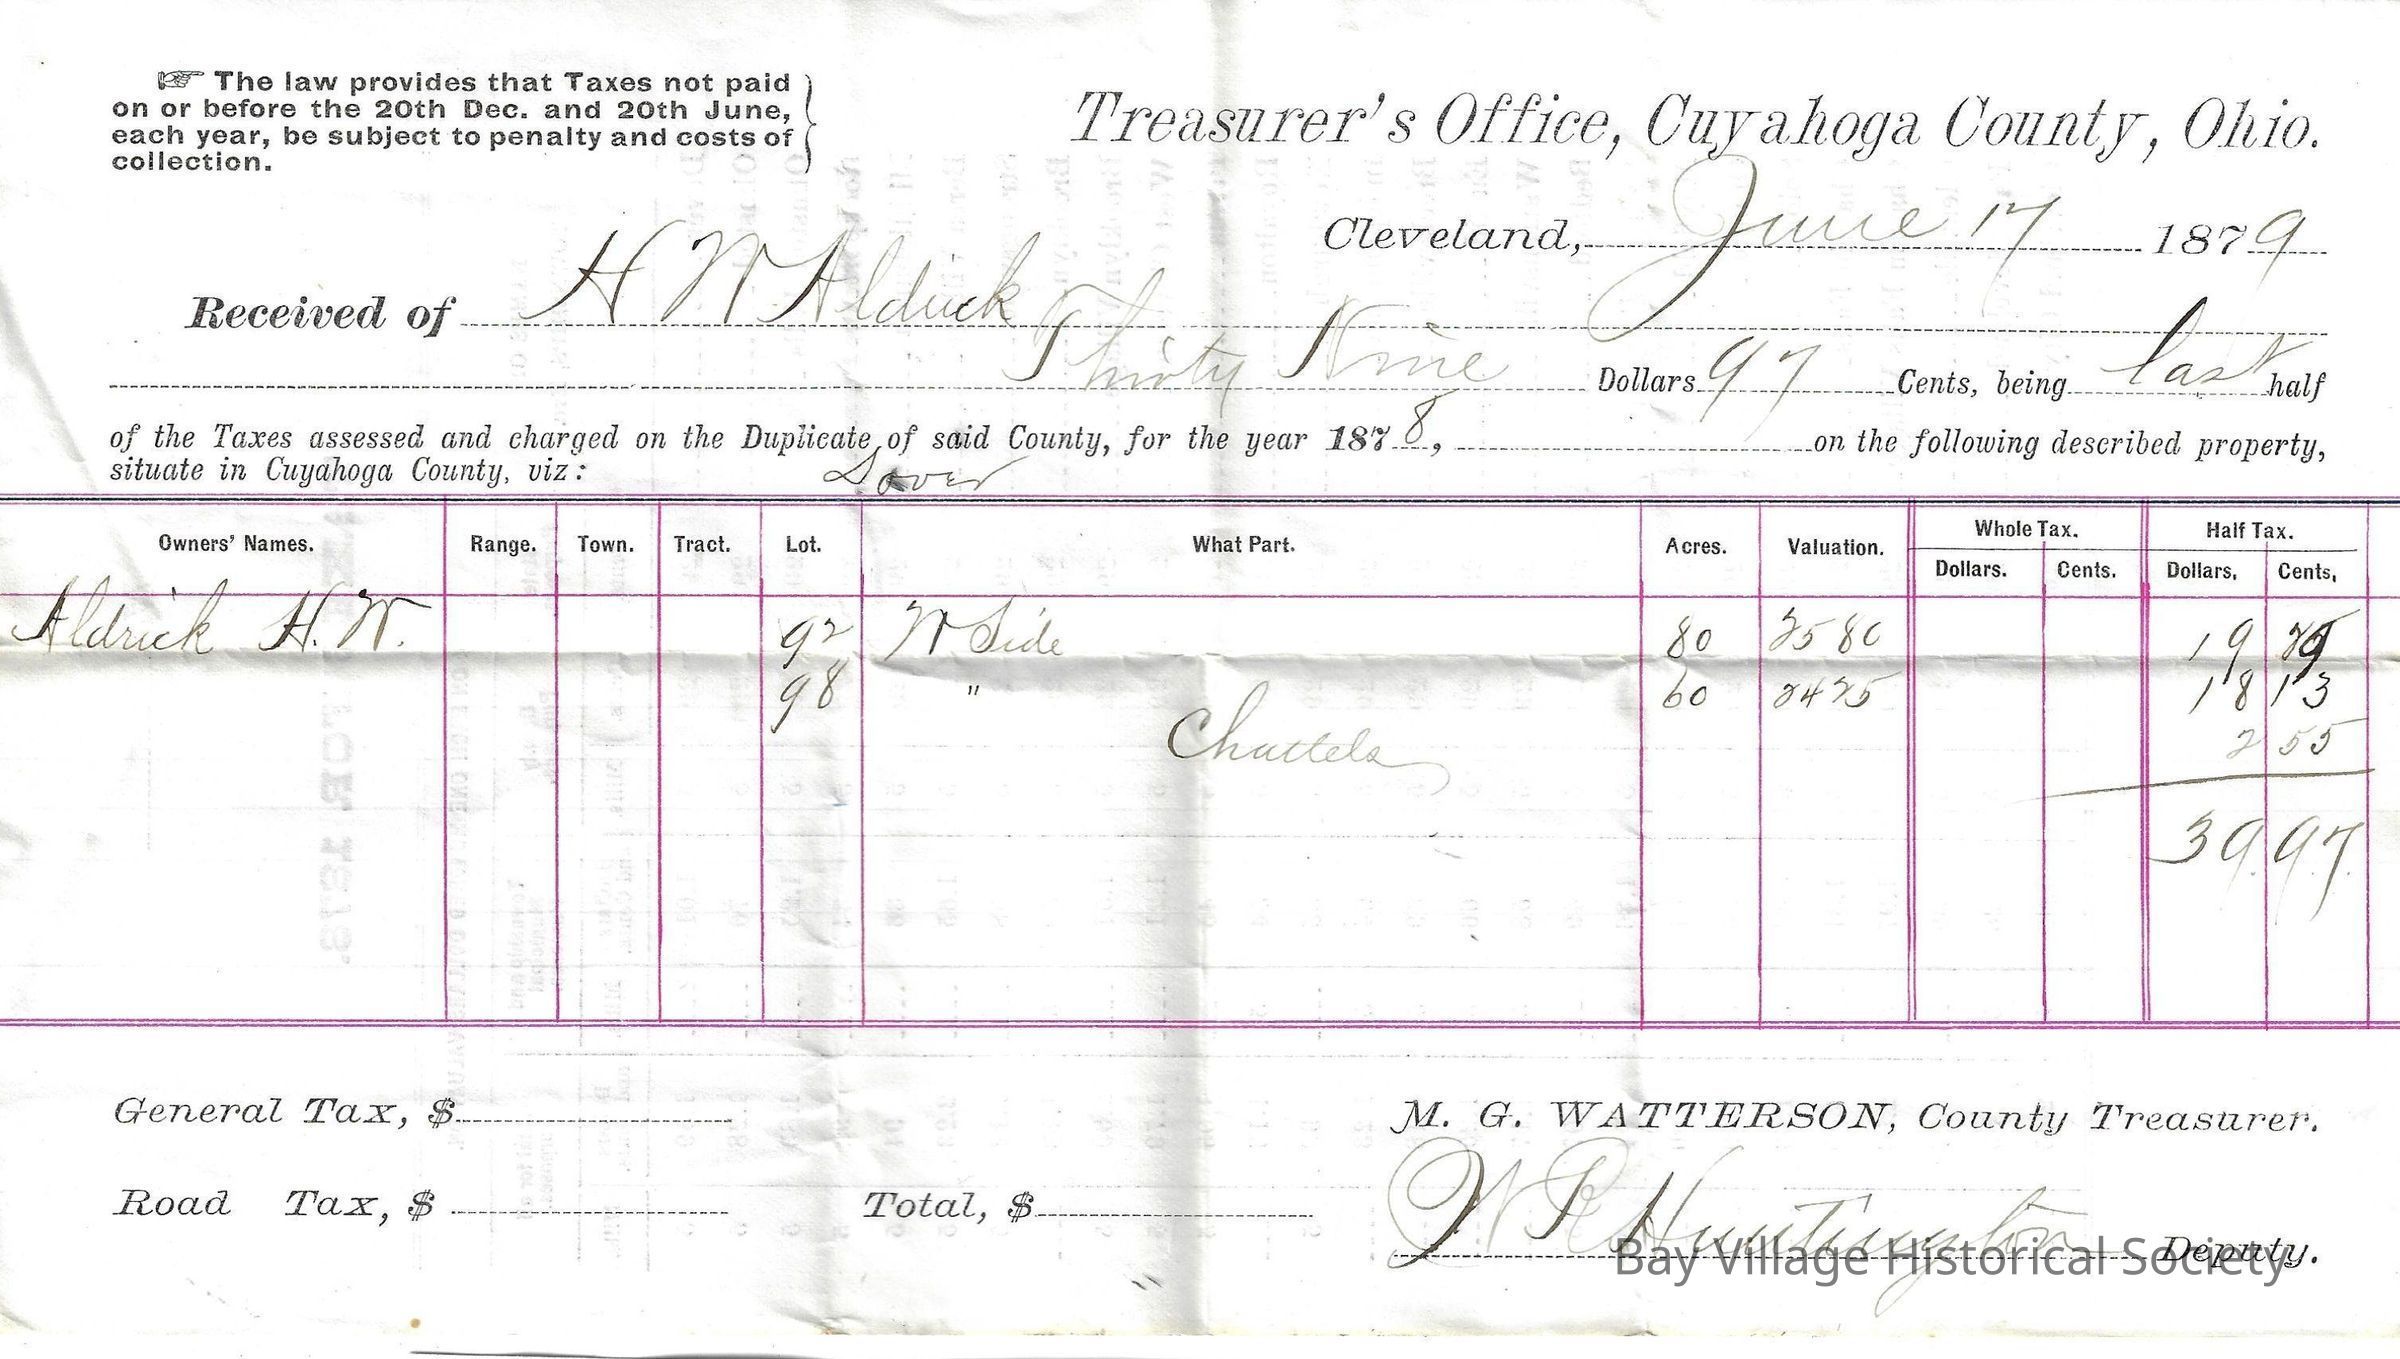 ☞ The law provides that Taxes not paid
on or before the 20th Dec. and 20th June,
each year, be subject to penalty and costs of
collection.
Treasurer's Office, Cuyahoga County, Ohio.
Cleveland, June 17 1879
Received of H W Aldrick
Thirty Nine Dollars 97 Cents, being last half
of the Taxes assessed and charged on the Duplicate of said County, for the year 1878, on the following described property,
situate in Cuyahoga County, viz: Dover
Owners' Names. Range. Town. Tract. Lot. What Part. Acres. Valuation. Whole Tax. Half Tax.
Dollars. Cents. Dollars, Cents,
Aldrick H. W. 92 W Side 80 2580 19 29
98 " 60 2425 18 13
Chattels 2 55
39.97.
General Tax, $
M. G. WATTERSON, County Treasurer.
Road Tax, $ Total, $
W R Huntington Deputy.
Bay Village Historical Society